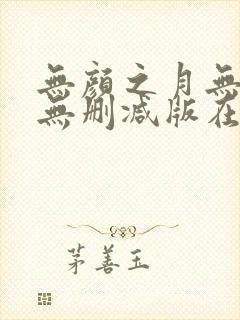 無顏之月無
無刪減版在
茅善玉